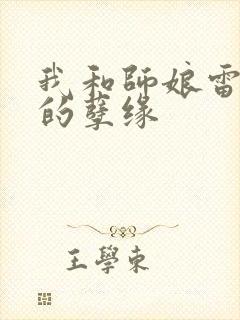 我和師娘雷
的孽缘
王學東